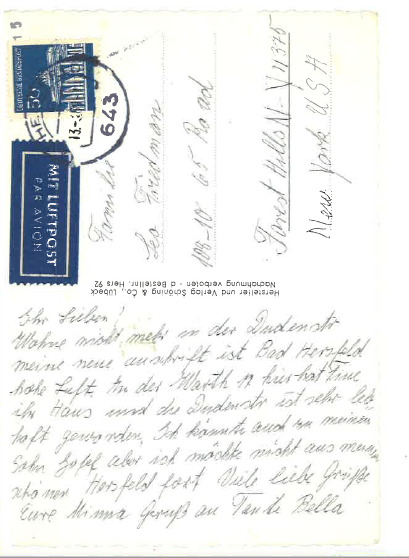 15
DEUTSCHE BUNDESPOST
50
13.
643
MIT LUFTPOST
PAR AVION
Familie
Leo Friedman
108-10 65 Road
Forest Hills N-Y 11375
New York USA
Hersteller und Verlag Schöning & Co., Lübeck
Nachahmung verboten - d Bestellnr. Hers 92
Ihr Lieben!
Wohne nicht mehr in der Dudenstr
meine neue anschrift ist Bad Hersfeld
hohe Luft. In der Warth 17 hier hat Eine
ihr Haus und die Dudenstr ist sehr leb-
haft geworden. Ich könnte auch zu meinem
Sohn aber ich möchte nicht aus meinem
schönen Hersfeld fort Viele liebe Grüße
Eure Minna Gruß an Tante Bella